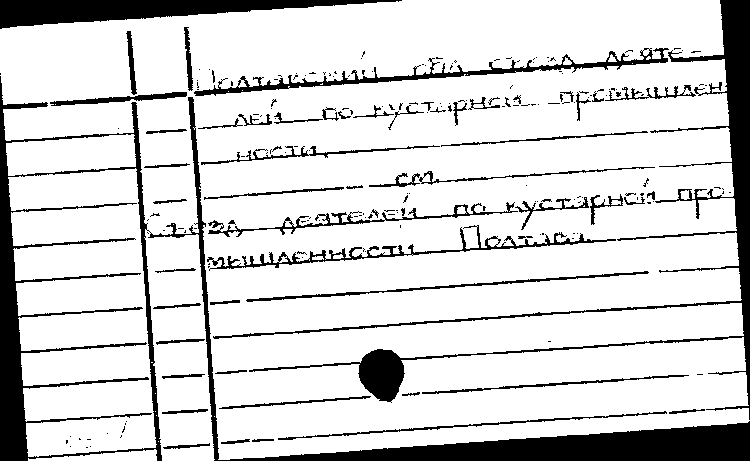 Полтавский обл. съезд деяте-
лей по кустарной промышлен
ности.
см.
Съезд деятелей по кустарной про
мышленности Полтава.